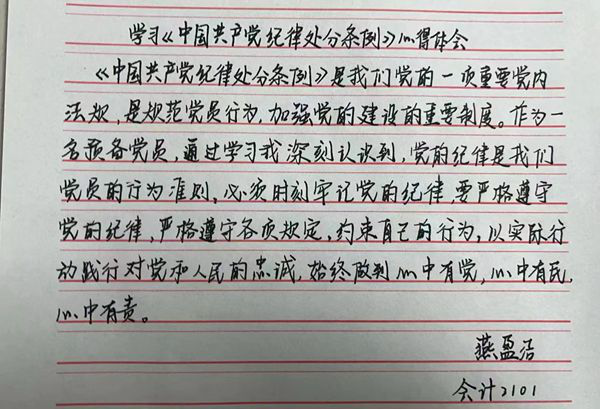 学习《中国共产党纪律处分条例》心得体会
《中国共产党纪律处分条例》是我们党的一项重要党内
法规,是规范党员行为,加强党的建设的重要制度。作为一
名预备党员,通过学习我深刻认识到,党的纪律是我们
党员的行为准则,必须时刻牢记党的纪律,要严格遵守
党的纪律,严格遵守各项规定,约束自己的行为,以实际行
动践行对党和人民的忠诚,始终做到心中有党,心中有民,
心中有责。
燕盈洁
会计2101